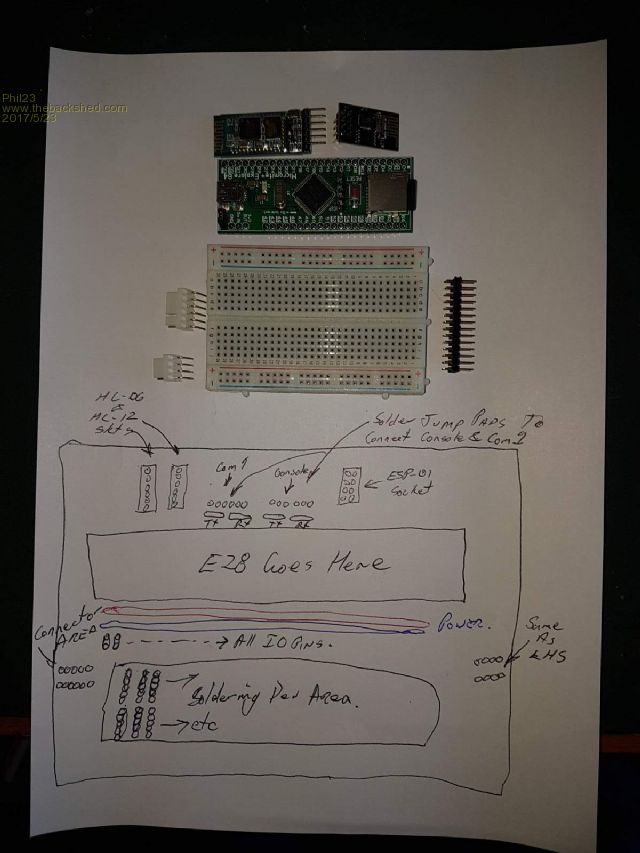 Phil23
www.thebackshed.com
2017/5/23
RESET
HC-06
&
HC-12
skts
Solder Jump Pads To
Connect Console & Com1
Com 1
Console
ESP-01
Socket
TX
RX
TX
RX
E28 Goes Here
Connector
AREA
POWER.
All IO Pins.
Same
As
LHS
Soldering Pad Area.
etc